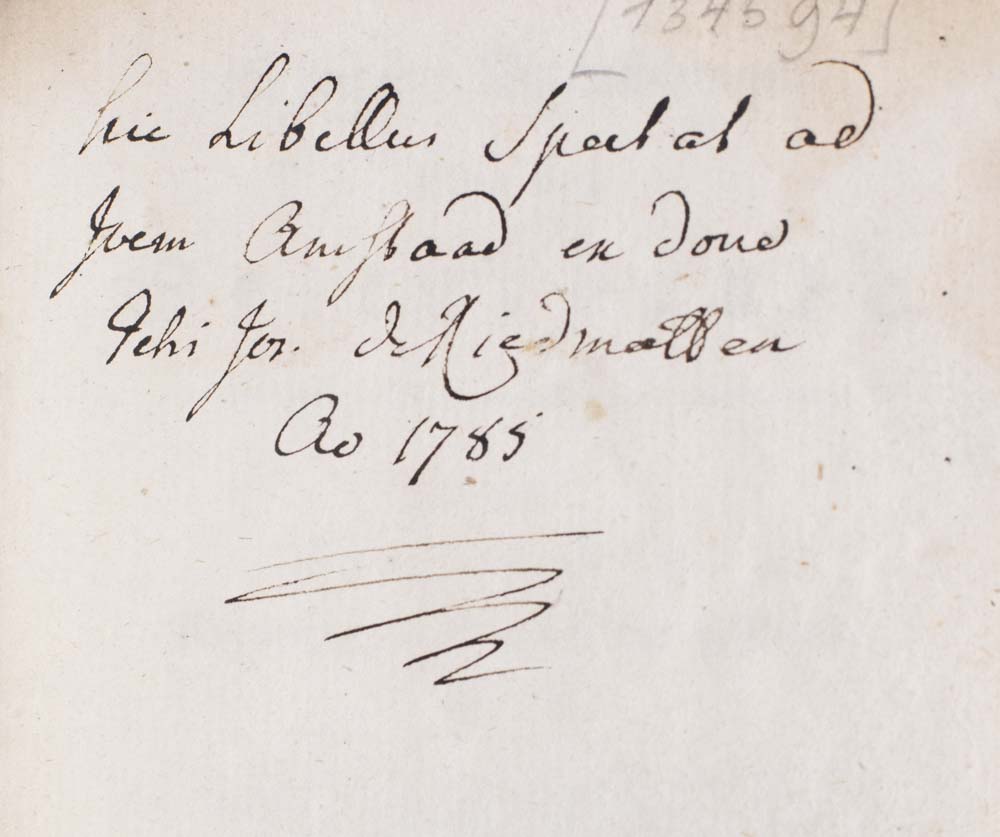 [134594]
hic Libellus Spectat ad
Joem Amstaad ex dono
Jos. de Riedmatten
Ao 1785